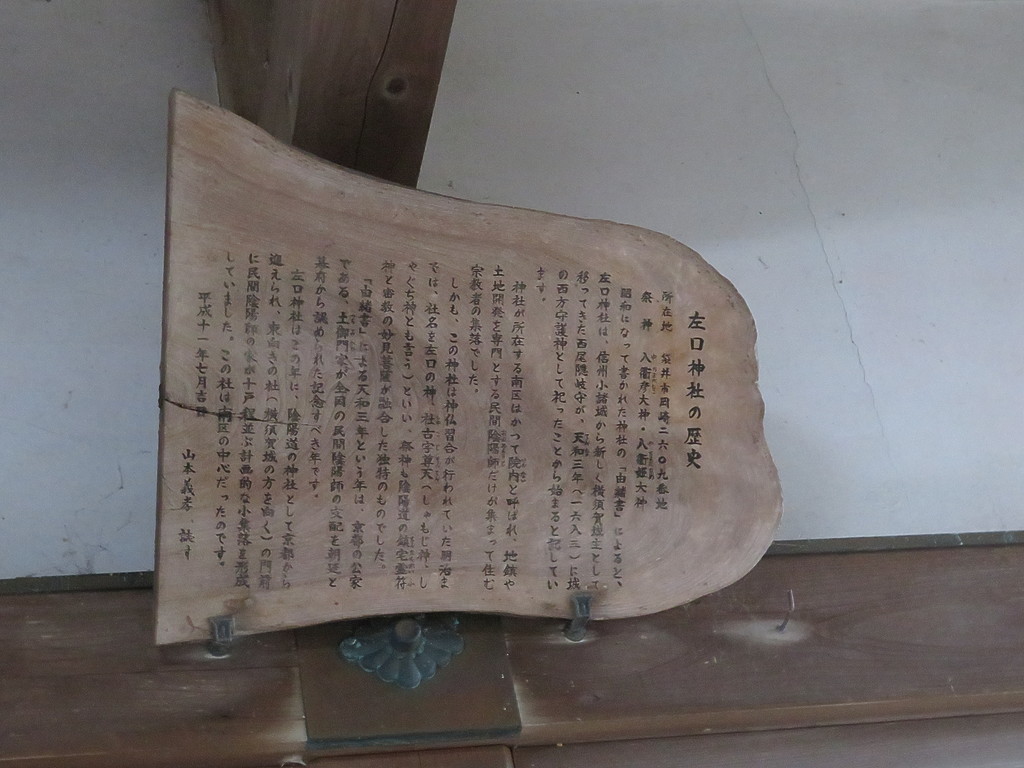 左口神社の歴史
所在地　袋井市岡崎二六〇九番地
祭　神　八衢彦大神・八衢姫大神
昭和になって書かれた神社の「由緒書」によると、
左口神社は、信州小諸城から新しく横須賀城主として
移ってきた西尾隠岐守が、天和三年（一六八三）に城
の西方守護神として祀ったことから始まると記してい
ます。
神社が所在する南区はかつて院内と呼ばれ、地鎮や
土地開発を専門とする民間陰陽師だけが集まって住む
宗教者の集落でした。
しかも、この神社は神仏習合が行われていた明治ま
では、社名を左口の神、社古字尊天（しゃもじ神、し
ゃぐち神とも言う）といい、祭神も陰陽道の鎮宅霊符
神と密教の妙見菩薩が融合した独特のものでした。
「由緒書」による天和三年という年は、京都の公家
である、土御門家が全国の民間陰陽師の支配を朝廷と
幕府から認められた記念すべき年です。
左口神社はこの年に、陰陽道の神社として京都から
迎えられ、東向きの社（横須賀城の方を向く）の門前
に民間陰陽師の家が十戸程並ぶ計画的な小集落を形成
していました。この社は南区の中心だったのです。
平成十一年七月吉日　山本義孝　誌す